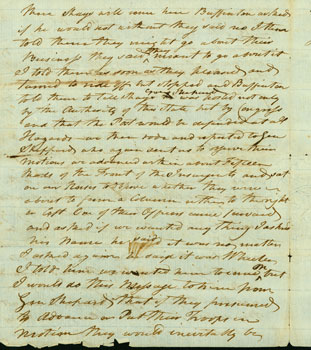 there Shays will come here Buffinton asked
if he would not without they said no I then
told them they might go about their
Business they said they meant to go about it
I told them as soon as they pleased and
turned to ride off but stopped and Buffinton
told them to tell Shays was not
by the Authority of this State but by Congress
and that the Post would be defended at all
Hazards we then rode and reported to Gen
Shepherd who again sent us to observe their
Motions we advanced within about Fifteen
Rods of the Front of the Insurgents and sat
on our Horses to observe whether they were
about to form a Column either to the right
or left One of their Officers came forward
and asked if we wanted any thing I asked
his Name he said it was no matter
I asked again he said it was Wheeler
I told him we wanted none but
I would do this Message to him from
Gen Shepard that if they presumed
to Advance or Put their Troops in
motion they would inevitably be